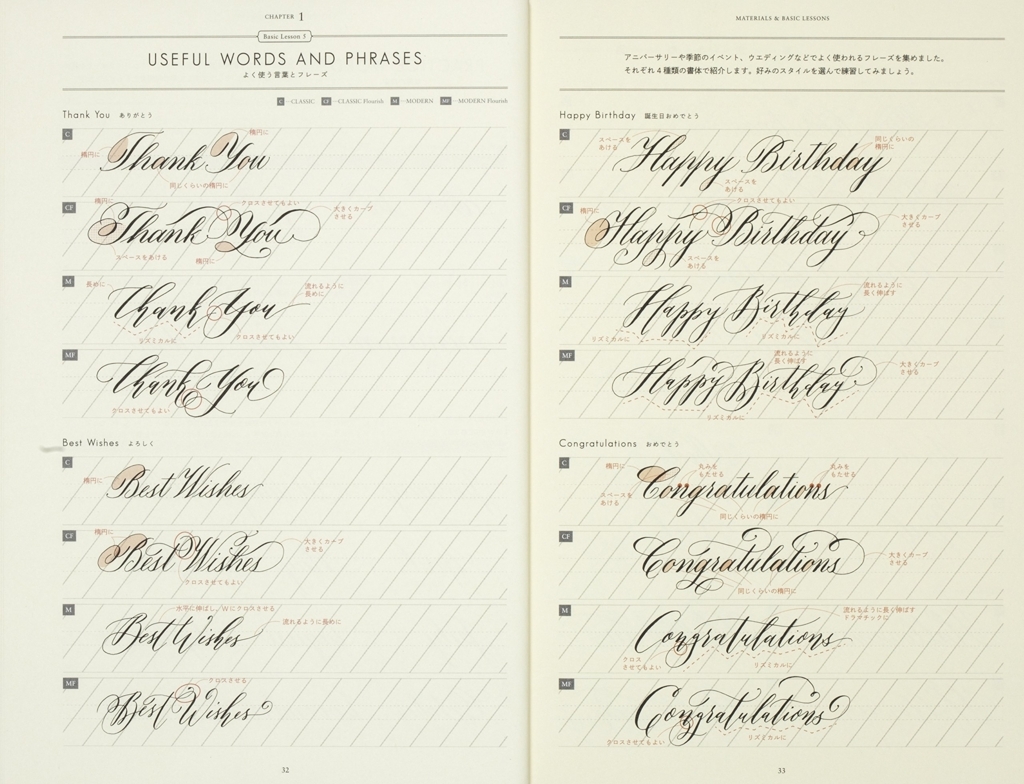 CHAPTER 1
Basic Lesson 3
USEFUL WORDS AND PHRASES
よく使う言葉とフレーズ
C …CLASSIC CF …CLASSIC Flourish M …MODERN MF …MODERN Flourish
Thank You ありがとう
C
楕円に
楕円に
Thank You
同じくらいの楕円に
CF
楕円に
クロスさせてもよい
大きくカーブ
させる
Thank You
スペースをあける
楕円に
M
長めに
流れるように
長めに
Thank You
リズミカルに
クロスさせてもよい
MF
Thank You
クロスさせてもよい
Best Wishes よろしく
C
楕円に
Best Wishes
CF
楕円に
大きくカーブ
させる
Best Wishes
クロスさせてもよい
M
水平に伸ばし、Wにクロスさせる
流れるように長めに
Best Wishes
MF
クロスさせる
Best Wishes
32
MATERIALS & BASIC LESSONS
アニバーサリーや季節のイベント、ウエディングなどでよく使われるフレーズを集めました。
それぞれ4種類の書体で紹介します。好みのスタイルを選んで練習してみましょう。
Happy Birthday 誕生日おめでとう
C
スペースを
あける
同じくらいの
楕円に
Happy Birthday
スペースを
あける
CF
楕円に
クロスさせてもよい
大きくカーブ
させる
Happy Birthday
スペースを
あける
M
流れるように
長く伸ばす
Happy Birthday
リズミカルに
リズミカルに
MF
流れるように
長く伸ばす
大きくカーブ
させる
Happy Birthday
リズミカルに
Congratulations おめでとう
C
楕円に
丸みを
もたせる
丸みを
もたせる
スペースを
あける
Congratulations
同じくらいの楕円に
CF
大きくカーブ
させる
Congratulations
同じくらいの楕円に
M
流れるように長く伸ばす
ドラマチックに
Congratulations
クロス
させてもよい
リズミカルに
MF
Congratulations
クロスさせてもよい
リズミカルに
33